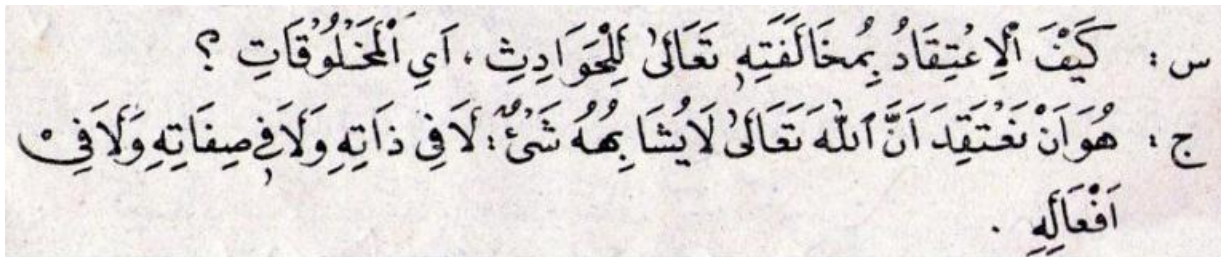 س : كَيْفَ ٱلْاِعْتِقَادُ بِمُخَالَفَتِهِ تَعَالٰى لِلْحَوَادِثِ ، اَيِ ٱلْمَخْلُوْقَاتِ ؟
ج : هُوَ اَنْ نَعْتَقِدَ اَنَّ ٱللّٰهَ تَعَالٰى لَايُشَابِهُهُ شَيْءٌ : لَا فِى ذَاتِهِ وَلَا فِى صِفَاتِهِ وَلَا فِىْ
اَفْعَالِهِ .